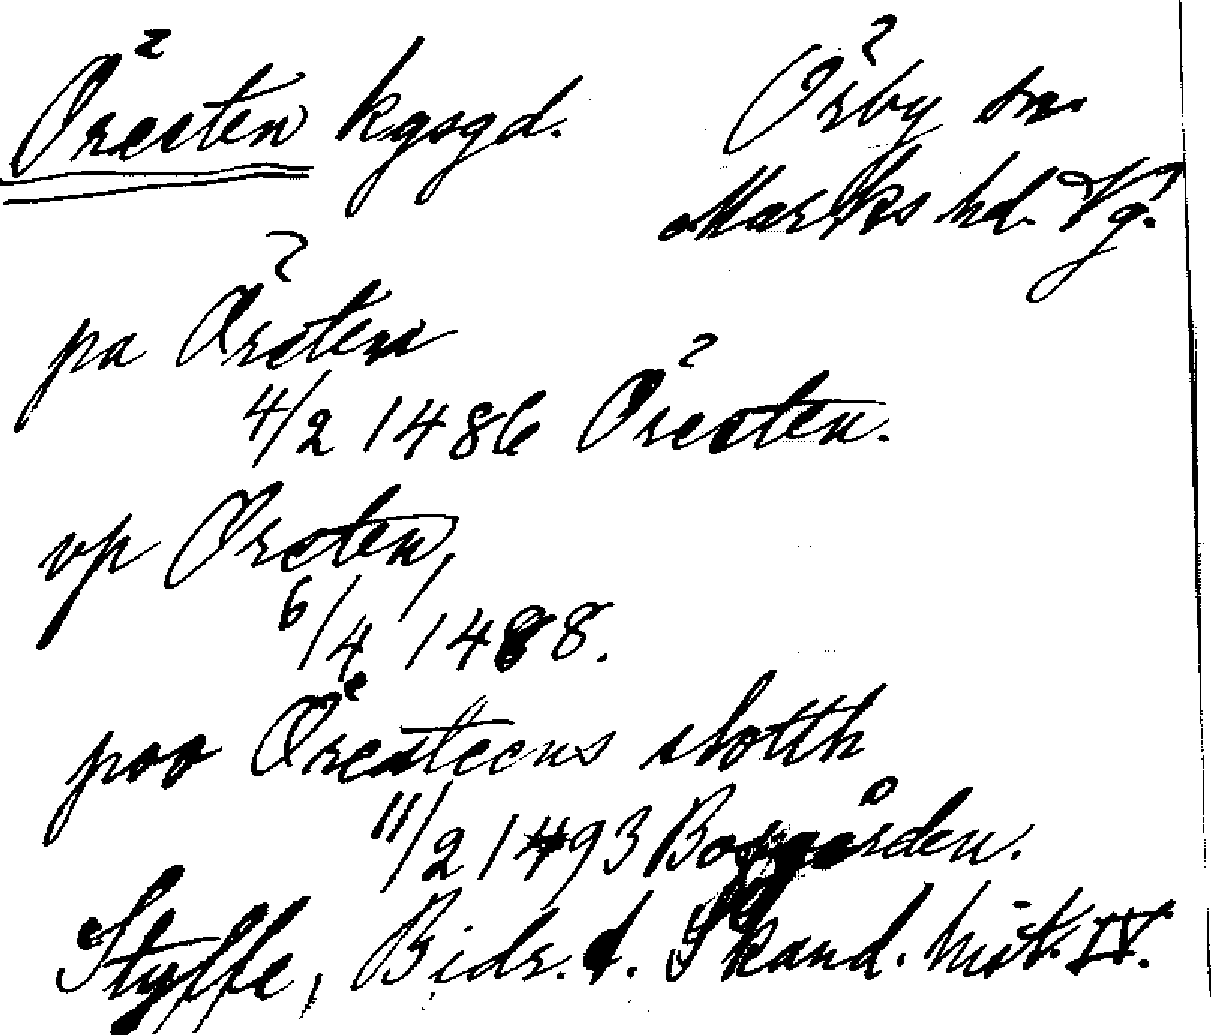 Öresten kgsgd.
Örby sn.
Marks hd. Vg.
pa Örsten
4/2 1486 Öresten.
vp Orsten,
6/4 1488.
poo Öresteens slotth
11/2 1493 Borgården.
Styffe, Bidr. t. Skand. hist. IV.